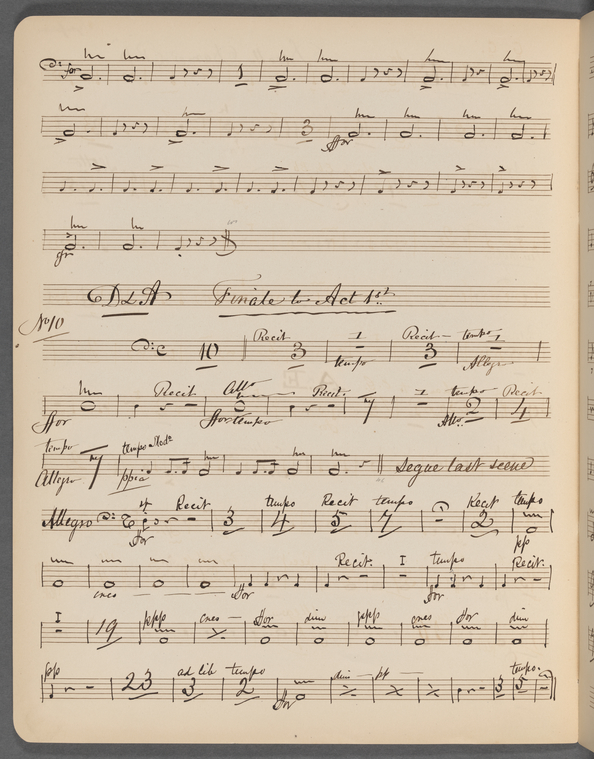 for 1
3 ffor
for
D & A Finale to Act 1st
No 10
10 Recit 3 1 tempo Recit 3 tempo 1 Allegro
ffor Recit Allo ffor tempo Recit. 7 1 tempo Allo. 2 Recit 4
tempo Allegro 7 tempo Modto ppia Segue last scene
Allegro 4 for Recit 3 tempo 4 Recit 5 tempo 7 Recit 2 tempo pp
cres ffor Recit. 1 tempo for Recit.
1 19 ppp cres ffor dim ppp cres ffor dim
pp 23 ad lib 3 tempo 2 ffor dim pp 3 tempo. 5